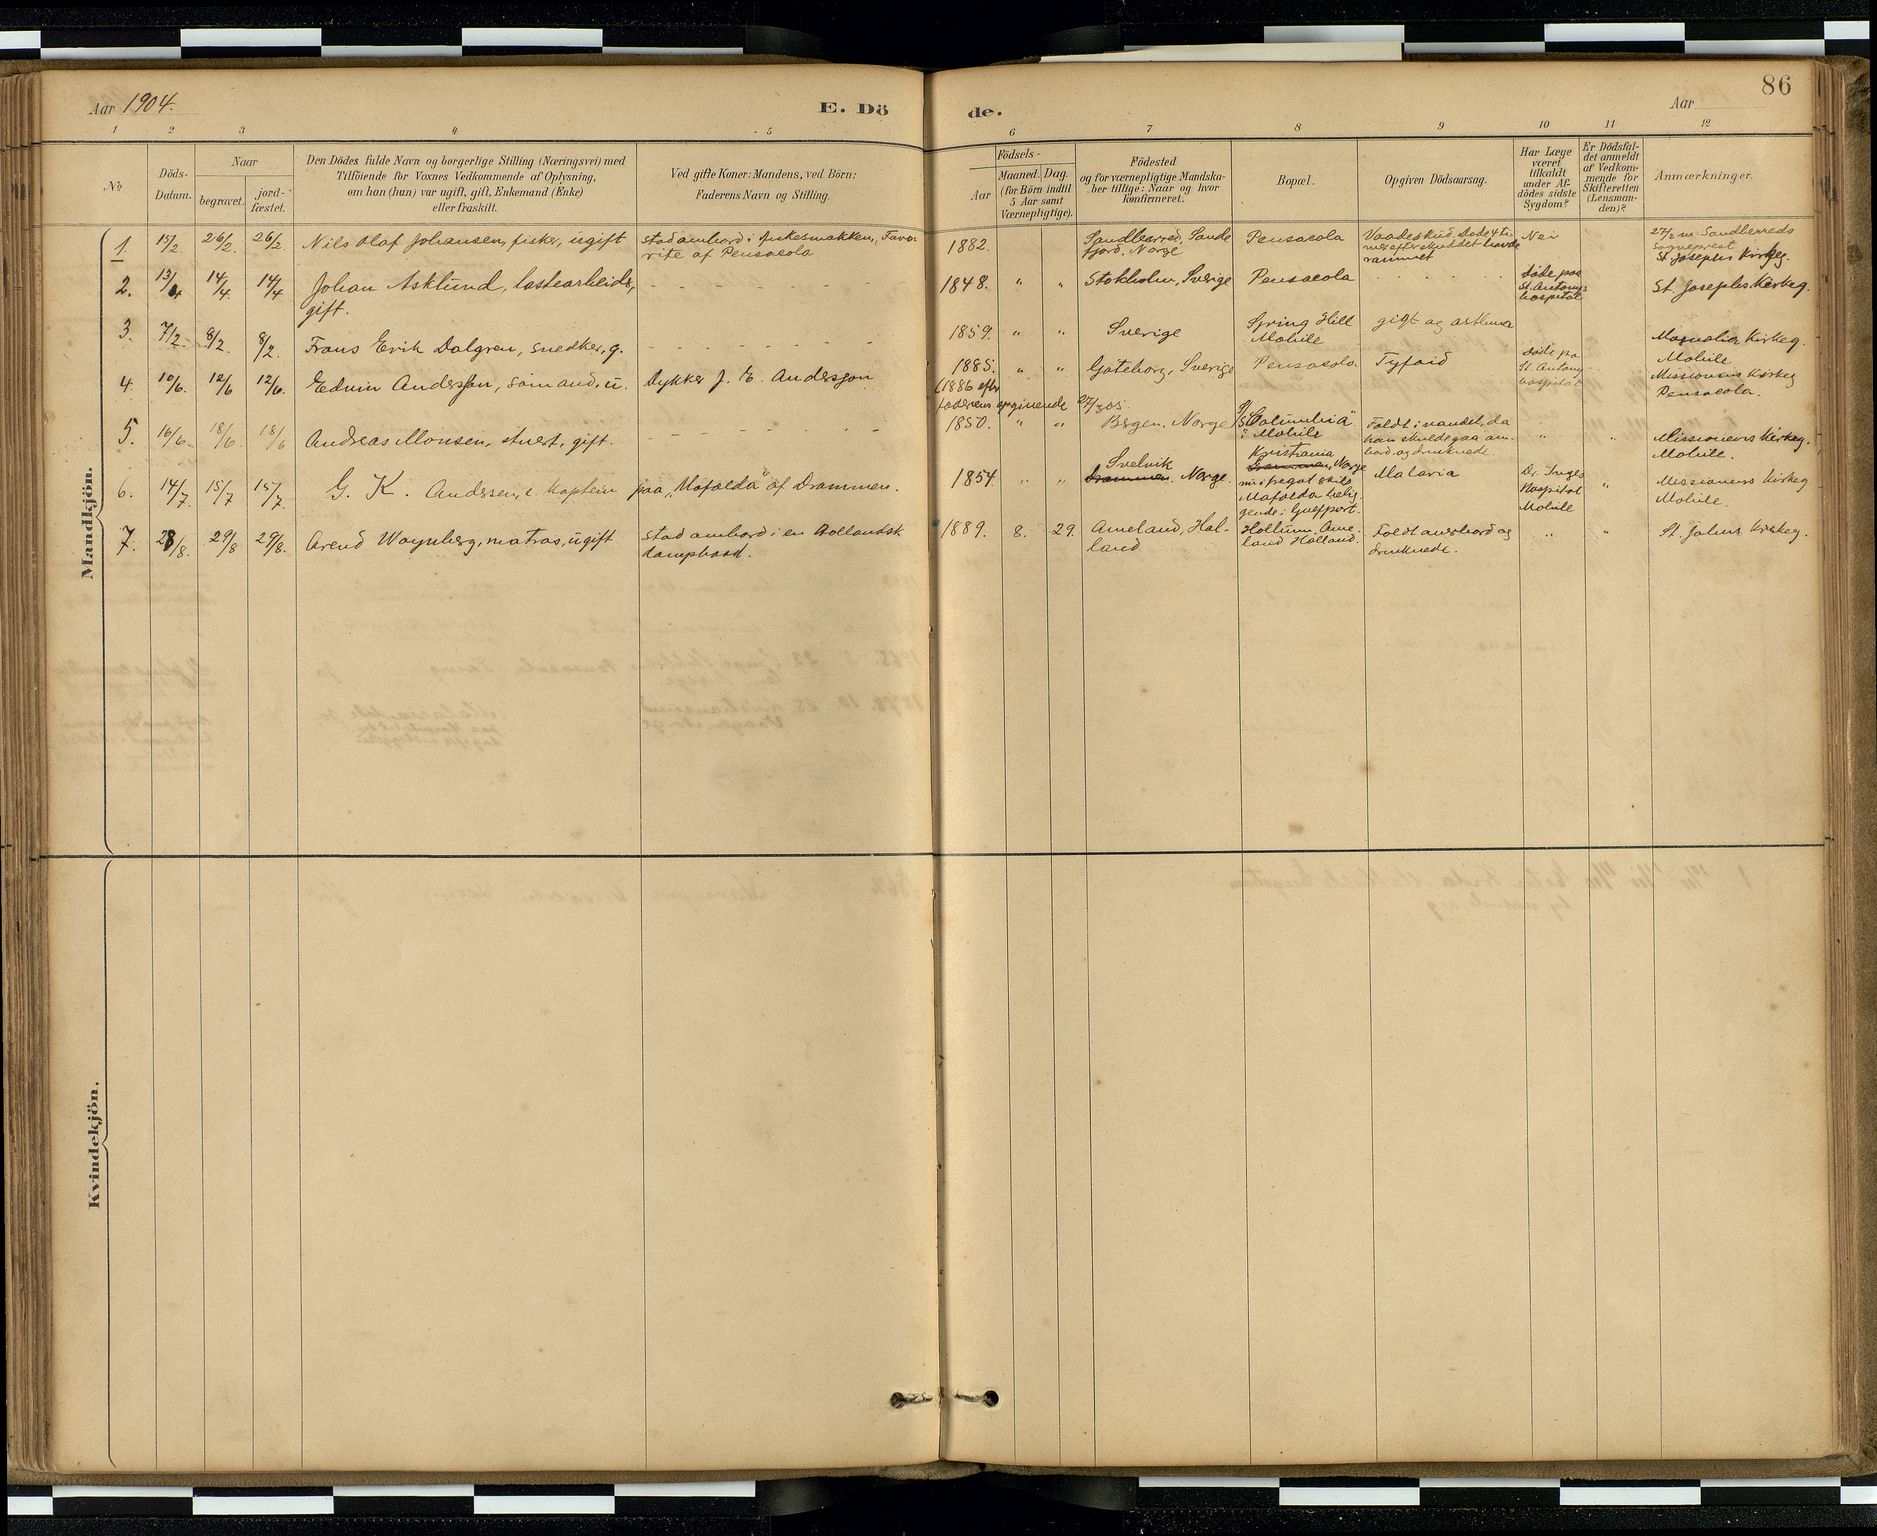 Aar 1904.
E. Dö
de.
Aar
86
1 2 3 4 5 6 7 8 9 10 11 12
No
Döds-
Datum.
Naar
begravet.
jord-
fæstet.
Den Dödes fulde Navn og borgerlige Stilling (Næringsvei) med
Tilföiende for Voxnes Vedkommende af Oplysning,
om han (hun) var ugift, gift, Enkemand (Enke)
eller fraskilt.
Ved gifte Koner: Mandens, ved Börn:
Faderens Navn og Stilling.
Födsels-
Aar
Maaned.
Dag.
(for Börn indtil
5 Aar samt
Værnepligtige).
Födested
og for værnepligtige Mandska-
ber tillige: Naar og hvor
konfirmeret.
Bopæl.
Opgiven Dödsaarsag.
Har Læge
været
tilkaldt
under Af-
dödes sidste
Sygdom?
Er Dödsfal-
det anmeldt
af Vedkom-
mende for
Skifteretten
(Lensman-
den)?
Anmærkninger.
Mandkjön.
1. 15/2 26/2. 26/2. Nils Olaf Johansen, fisker, ugift
stod ambord i fiskesmakken, Favo-
rite af Pensacola
1882.
Sandherred, Sande
fjord, Norge
Pensacola
Vaadeskud. Dode 4 ti-
mer efter skuddet havde
rammet
Nei
27/2 m. Sandherreds
Sogneprest
St. Josephs Kirkeg.
2. 13/4 14/4. 14/4 Johan Asklund, lastearbeider,
gift.
1848. " " Stokholm, Sverige Pensacola
döde paa
St. Antonys
hospital
St. Josephs Kirkeg.
3. 7/2. 8/2. 8/2. Frans Erik Dalgren, snedker, g.
1859. " " Sverige
Spring Hill
Mobile
gigt og asthma
Magnolia Kirkeg.
Mobile
4. 10/6. 12/6 12/6. Edvin Andersson, sömand, u. Dykker J. E. Andersson
1885. " " Göteborg, Sverige Pensacola Tyfoid
(1886 efter
faderens opgivende 27/3 05.
döde pa
St. Antony
hospital
Missionens Kirkeg
Pensacola.
5. 16/6. 18/6. 18/6 Andreas Monsen, stuert, gift.
1850. " " Bergen, Norge
S/S "Columbia"
i Mobile
Foldt i vandet, da
han skulde gaa am-
bord, og druknede.
" "
Missionens Kirkeg.
Mobile.
6. 14/7 15/7 15/7. G. K. Andersen, e. Kaptein paa "Mafalda" af Drammen.
1854. " "
Svelvik
Drammen, Norge.
Kristiania
Drammen, Norge
Mafalda
Malaria
Dr. Inges
Hospital
Mobile
"
Missionens Kirkeg
Mobile.
7. 28/8. 29/8 29/8. Arend Woynberg, matros, ugift
stod ambord i en hollandsk
dampbaad.
1889. 8. 29.
Ameland, Hol-
land
Hollum, Ame-
land Holland.
Foldt ambord og
druknede.
" "
St. Johns Kirkeg.
Kvindekjön.